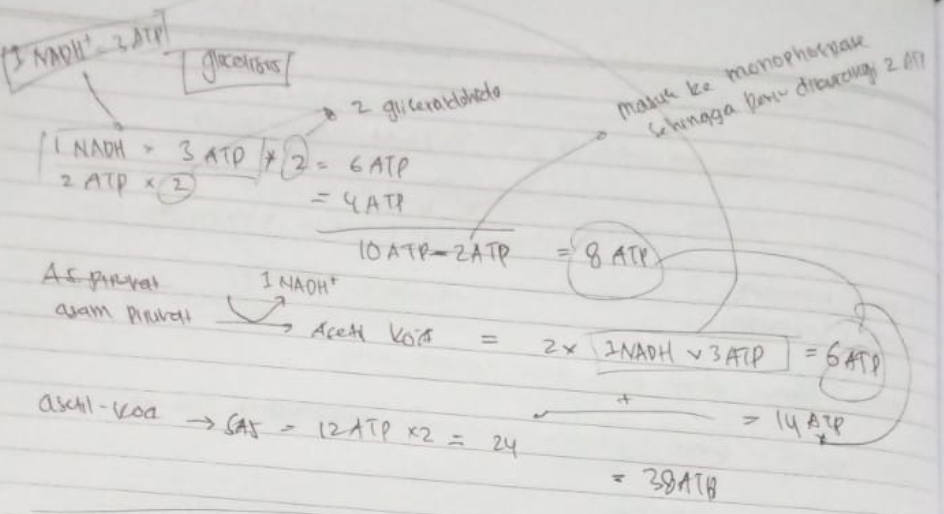 1 NADH⁺ = 3 ATP
2 gliseraldehida
masuk ke monophospate
sehingga perlu dikurangi 2 ATP
1 NADH = 3 ATP * 2 = 6 ATP
2 ATP × 2 = 4 ATP
10 ATP - 2 ATP = 8 ATP
1 NADH⁺
asam piruvat → Acetil KoA = 2 × 1 NADH × 3 ATP = 6 ATP
+ = 14 ATP
→ SAS = 12 ATP × 2 = 24
= 38 ATP